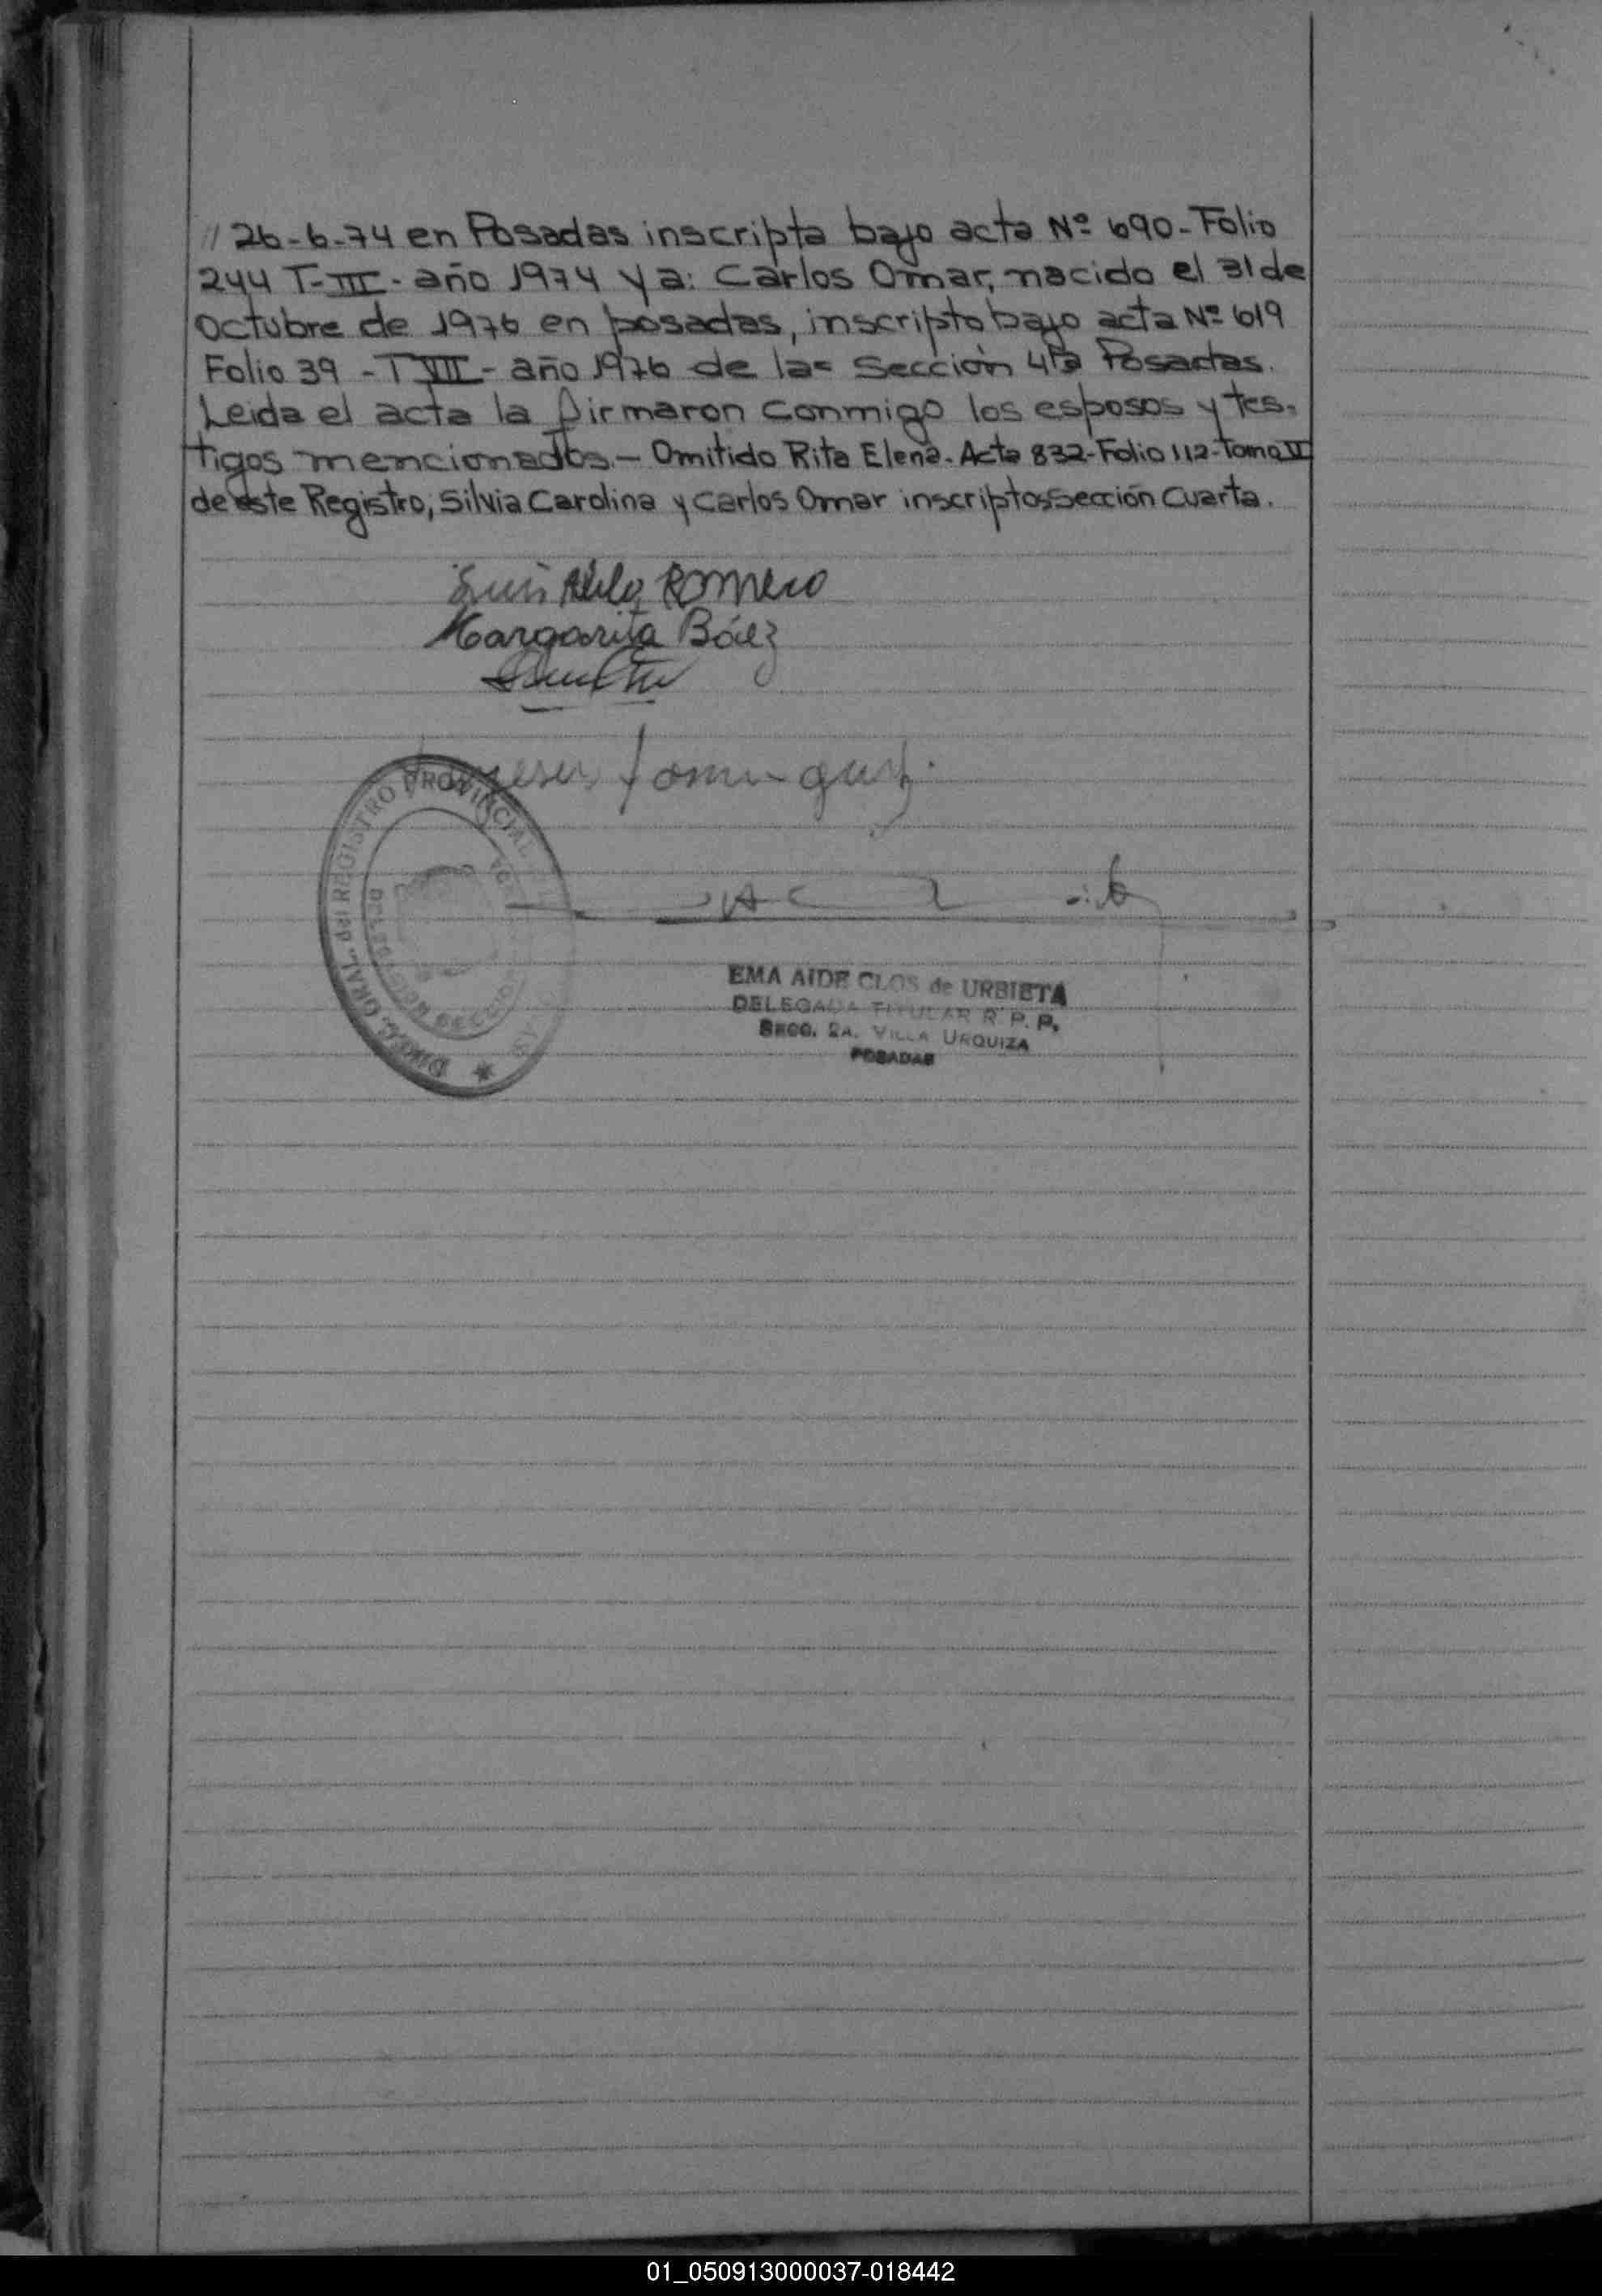 // 26-6-74 en Posadas inscripta bajo acta Nº 690-Folio
244 T-III- año 1974 y a: Carlos Omar, nacido el 31 de
Octubre de 1976 en posadas, inscripto bajo acta Nº 619
Folio 39 - T VII - año 1976 de la= Sección 4ta Posadas.
Leida el acta la firmaron conmigo los esposos y tes-
tigos mencionados.- Omitido Rita Elena. Acta 832-Folio 112-Tomo V
de este Registro, Silvia Carolina y Carlos Omar inscriptos Sección Cuarta.
Luis Romero
Margarita Báez
DIREC. GRAL. del REGISTRO PROVINCIAL
DELEGACION SECCION
EMA AIDE CLOS de URBIETA
DELEGADA TITULAR R. P. P.
SECC. 2A. VILLA URQUIZA
POSADAS
01_050913000037-018442